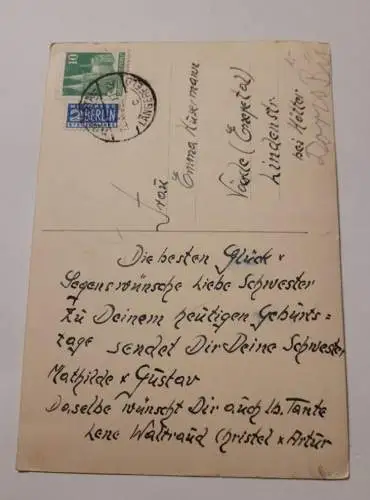 10
2 BERLIN
LANGERFELD
Frau
Emma Hünermann
Voerde (Ennepetal)
Lindenstr.
bei Hötter
Die besten Glück x
Segenswünsche liebe Schwester
zu Deinem heutigen Geburts=
tage sendet Dir Deine Schwester
Mathilde x Gustav
Daselbe wünscht Dir auch lb. Tante
Lene Waltraud Christel x Artur